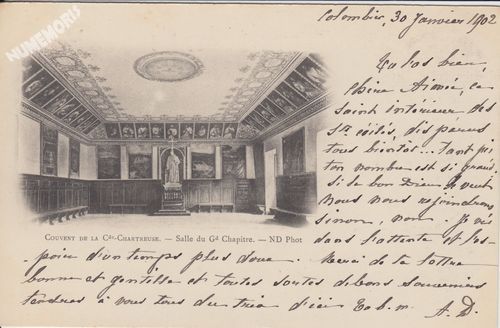 NUMEMORIS
Colombier, 30 Janvier 1902
Tu las bien,
chère Aimée, ce
saint intérieur des
disparus
tous bientôt... Tant pis
ton nombre est si grand,
si le bon Dieu le veut
nous nous rejoindrons
sinon, non. Je vis
dans l'attente et l'es-
COUVENT DE LA Gde-CHARTREUSE. — Salle du Gd Chapitre. — ND Phot
poir d'un temps plus doux. Merci de ta lettre
bonne et gentille et toutes sortes de bons souvenirs
tendres à vous tous du trio d'ici
A. D.